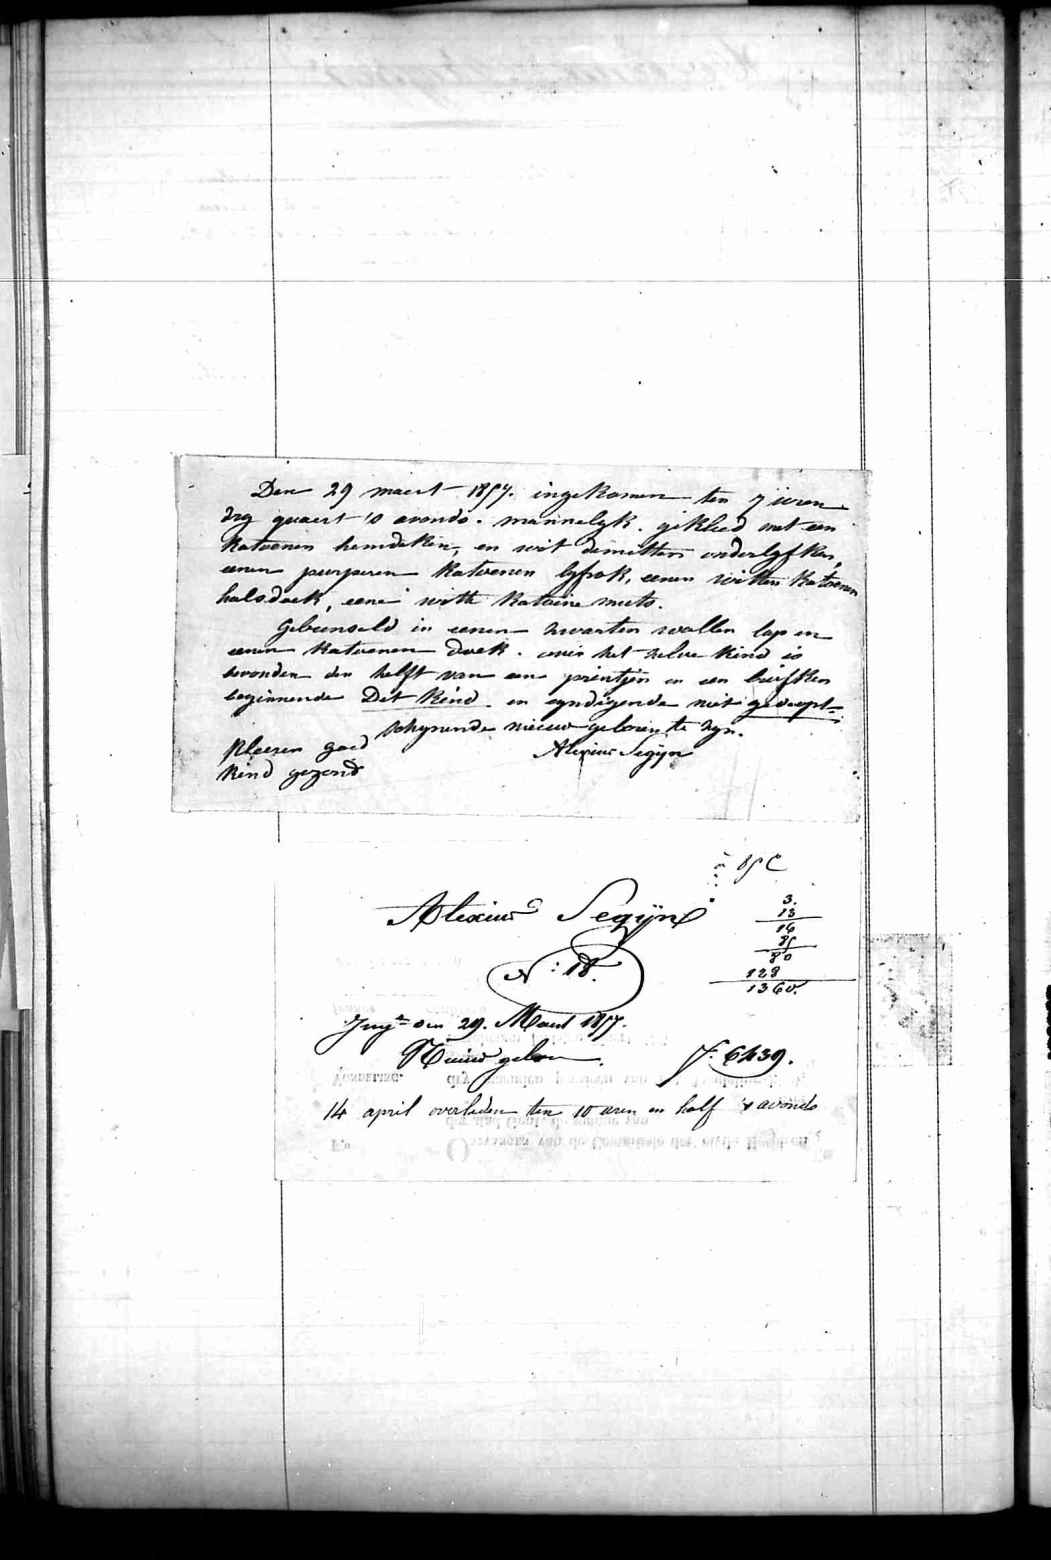 Den 29 maert 1857. ingekomen ten 7 uren
dry quaert 's avonds. mannelyk. gekleed met een
katoenen hemdeken, en wit dimitten onderlyfken,
eenen purperen katoenen lyfrok, eenen witten katoenen
halsdoek, eene witte katoine muts.
Gebunseld in eenen zwarten wollen lap en
eenen katoenen doek. over het zelve kind is
bevonden den helft van een printjen en een briefken
beginnende Dit kind. en eyndigende niet gedoopt
schynende nieuw geboren te zyn.
Kleeren goed
Alexius Segÿn
Kind gezond
85 C
3.
13
16
85
80
128
1360.
Alexius Segÿn
N: 18.
Ingn den 29. Maert 1857.
Nieuw geboren
f: 6439.
14 april overleden ten 10 uren en half 's avonds